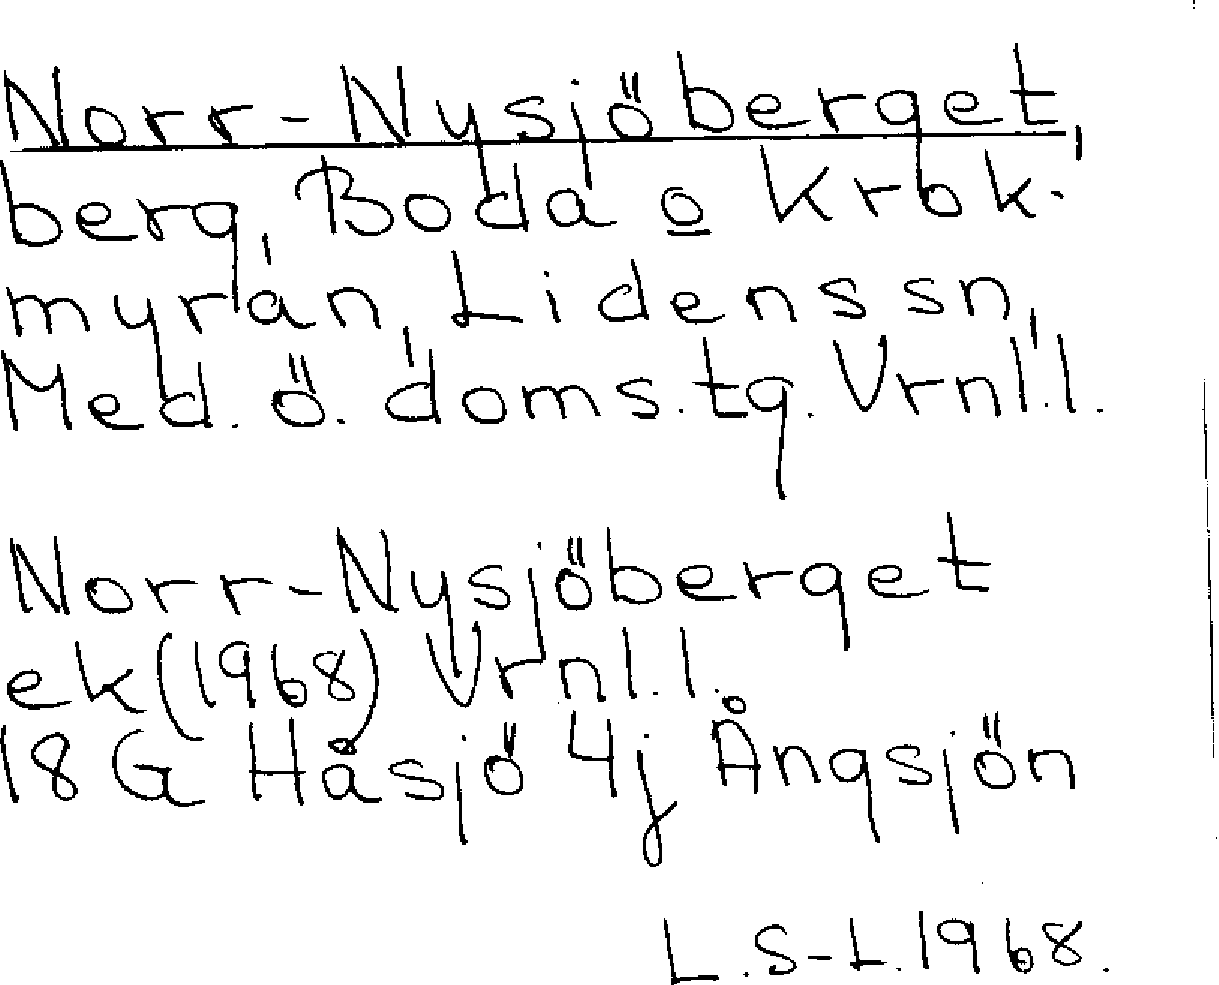 Norr-Nysjöberget,
berg, Boda o Krok-
myrån, Lidens sn,
Med. ö. doms.tg. Vrnl.l.
Norr-Nysjöberget
ek (1968) Vrnl.l.
18 G Håsjö 4j Ångsjön
L.S-L. 1968.